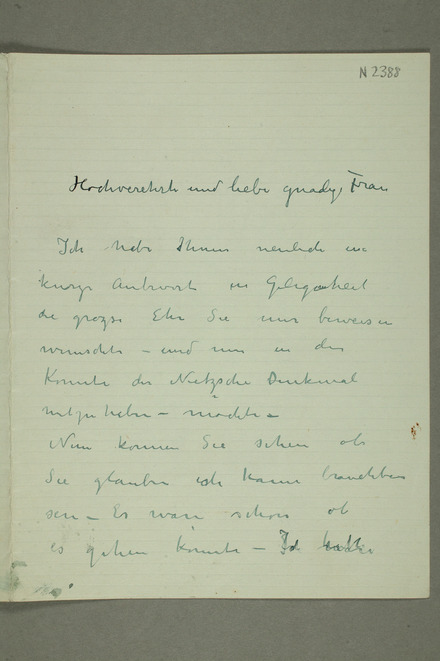 N 2388
Hochverehrte und liebe gnädige Frau
Ich habe Ihnen neulich
kurze Antwort in Gelegenheit
die grosse Ehre Sie mir beweisen
wünschte – und mir in das
Komite des Nietzsche Denkmal
mitzu – möchte –
Nun können Sie sehen ob
Sie glauben ich kann brauchbar
sein – Es wäre schön ob
es gehen könnte – Ich